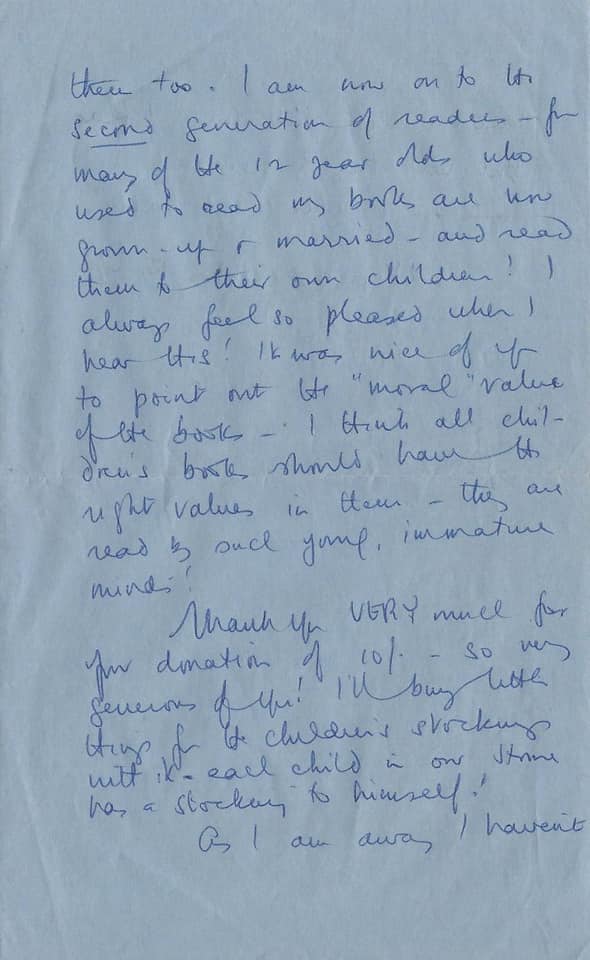 them too. I am now on to the
second generation of readers - for
many of the 12 year olds who
used to read my books are now
grown-up & married - and read
them to their own children! I
always feel so pleased when I
hear this! It was nice of you
to point out the "moral" value
of the books - I think all chil-
dren's books should have the
right values in them - they are
read by such young, immature
minds!
Thank you VERY much for
your donation of 10/- - so very
generous of you! I'll buy little
things for the children's stockings
with it - each child in our Home
has a stocking to himself!
As I am away I haven't